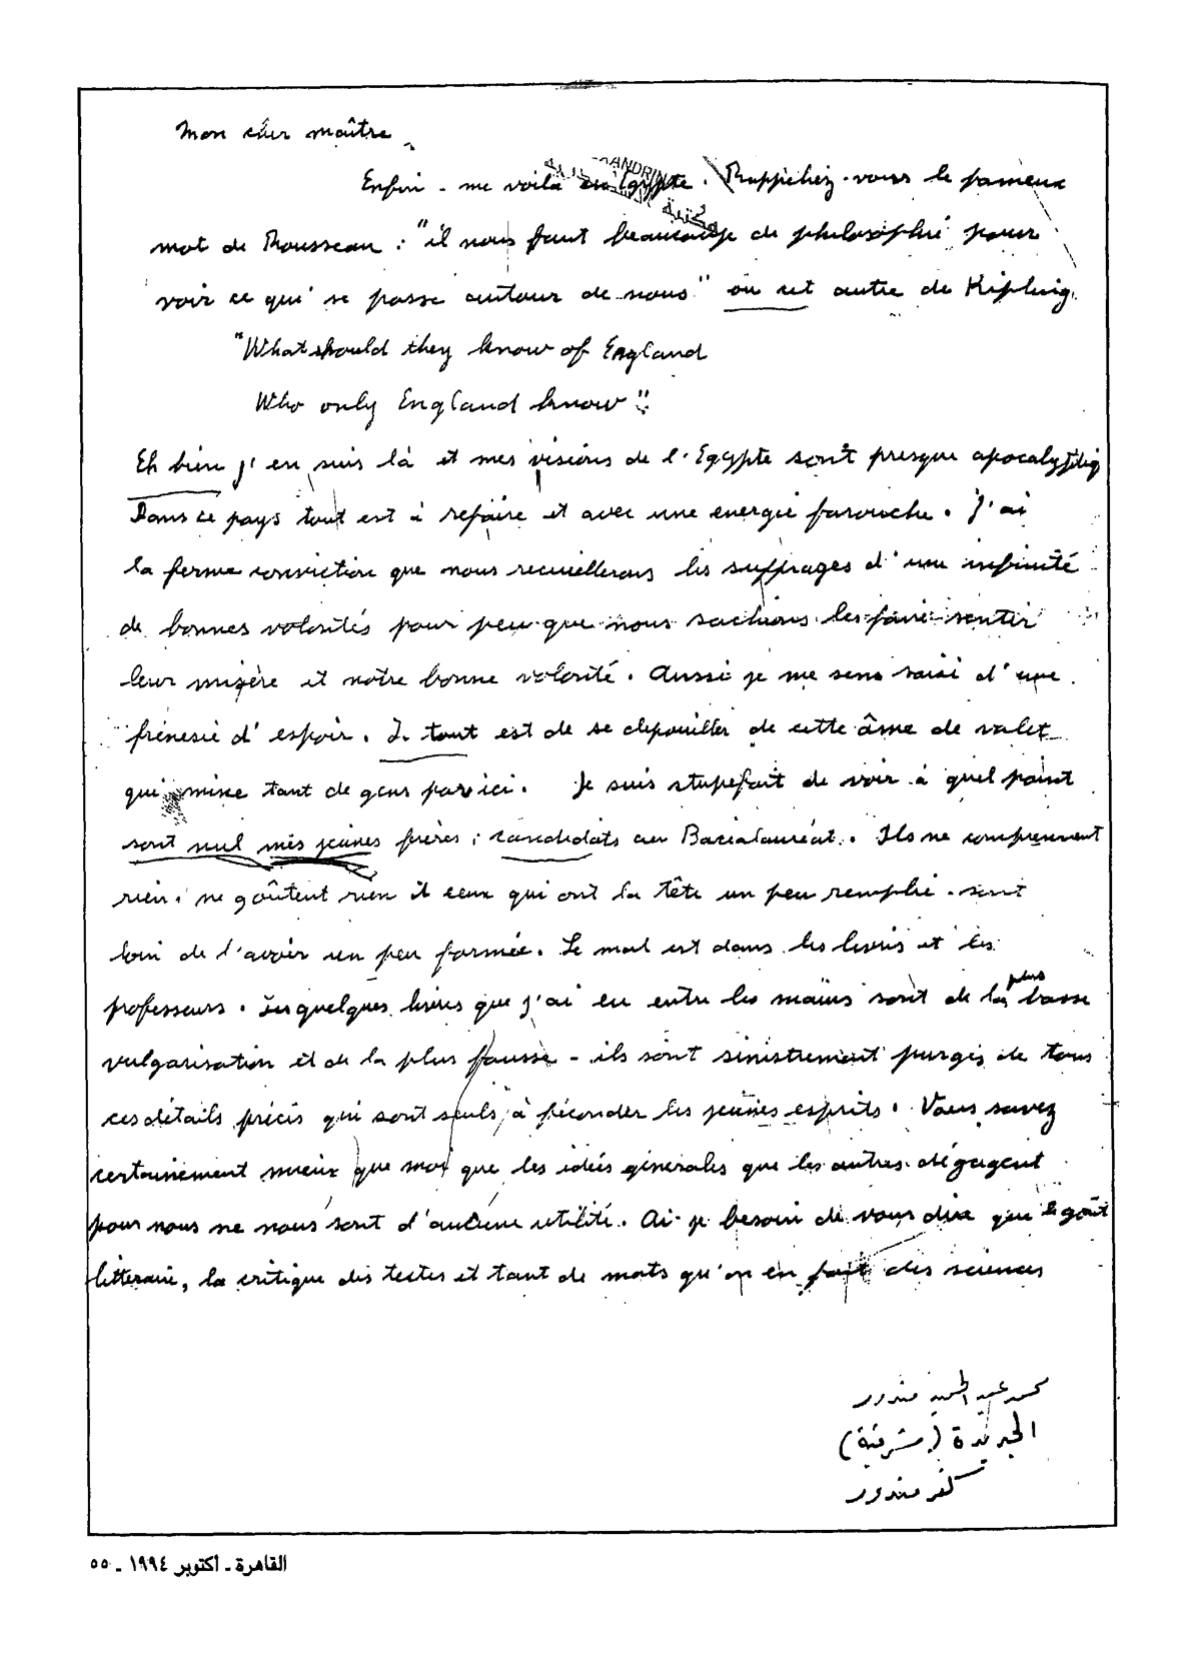 Mon cher maître,
Enfin - me voilà en Egypte. Rappelez-vous le fameux
mot de Rousseau : "il nous faut beaucoup de philosophie pour
voir ce qui se passe autour de nous" ou cet autre de Kipling.
"What should they know of England
Who only England know"!
Eh bien j'en suis là et mes visions de l'Egypte sont presque
Dans ce pays tout est à refaire et avec une energie farouche. J'ai
la ferme conviction que nous recueillerons les suffrages d'une infinité
de bonnes volontés pour peu que nous sachions les faire sentir
leur misère et notre bonne volonté. Aussi je me sens saisi d'une
frénesie d'espoir. Le tout est de se depouiller de cette âme de valet
qui mine tant de gens par ici. Je suis stupefait de voir à quel point
sont nul mes jeunes frères, candidats au Baccalaureat. Ils ne comprennent
rien, ne goûtent rien et ceux qui ont la tête un peu remplie - sont
loin de l'avoir un peu formée. Le mal est dans les livres et les
professeurs. Les quelques livres que j'ai eu entre les mains sont de la plus basse
vulgarisation et de la plus fausse - ils sont sinistrement purgés de tous
ces détails précis qui sont seuls à féconder les jeunes esprits. Vous savez
certainement mieux que moi que les idées génerales que les autres dégagent
pour nous ne nous sont d'aucune utilité. Ai-je besoin de vous dire que le goût
litteraire, la critique des textes et tant de mots qu'on en fait des sciences
محمد عبد الحميد مندور
الجريدة (شرقية)
كفر مندور
القاهرة ـ أكتوبر ١٩٩٤ ـ ٥٥